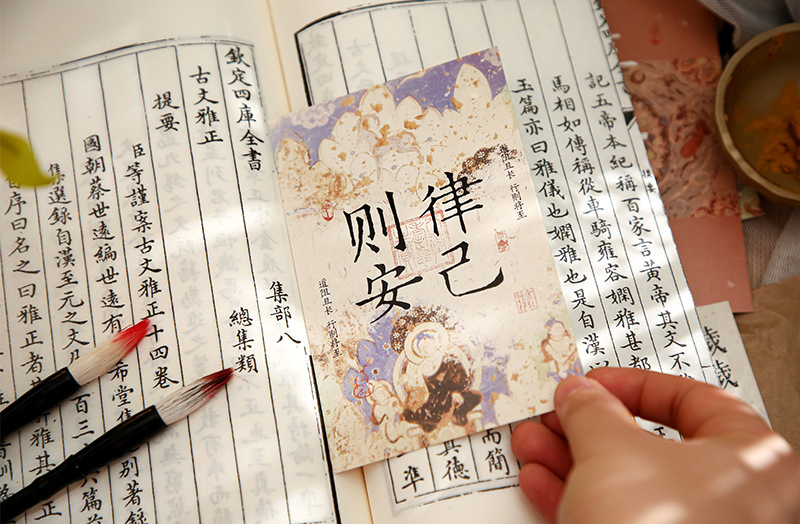 律己
则安
道阻且长 行则将至
道阻且长 行则将至
記五帝本紀稱百家言黃帝其文不
馬相如傳稱從車騎雍容嫻雅甚都
玉篇亦曰雅儀也嫻雅也是自漢
而簡
其德
準
歲歲
欽定四庫全書
集部八
古文雅正
總集類
提要
臣等謹案古文雅正十四卷
國朝蔡世遠編世遠有 布堂集 別著錄
集選錄自漢至元之文凡 百三 六篇
序曰名之曰雅正者其辭雅其